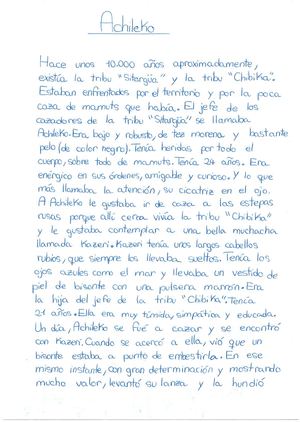 Achileko
Hace unos 10.000 años aproximadamente,
existía la tribu "Sitargüa" y la tribu "Chibika".
Estaban enfrentados por el territorio y por la poca
caza de mamuts que había. El jefe de los
cazadores de la tribu "Sitargüa" se llamaba
Achileko. Era, bajo y robusto, de tez morena y bastante
pelo (de color negro). Tenía heridas por todo el
cuerpo, sobre todo de mamuts. Tenía 24 años. Era
enérgico en sus órdenes, amigable y curioso. Y lo que
más llamaba la atención, su cicatriz en el ojo.
A Achileko le gustaba ir de caza a las estepas
rusas porque allí cerca vivía la tribu "Chibika"
y le gustaba contemplar a una bella muchacha
llamada Kazeri. Kazeri tenía unos largos cabellos
rubios, que siempre los llevaba sueltos. Tenía los
ojos azules como el mar y llevaba un vestido de
piel de bisonte con una pulsera marrón. Era
la hija del jefe de la tribu "Chibika". Tenía
21 años. Ella era muy tímida, simpática y educada.
Un día, Achileko se fué a cazar y se encontró
con Kazeri. Cuando se acercó a ella, vió que un
bisonte estaba a punto de embestirla. En ese
mismo instante, con gran determinación y mostrando
mucho valor, levantó su lanza y la hundió